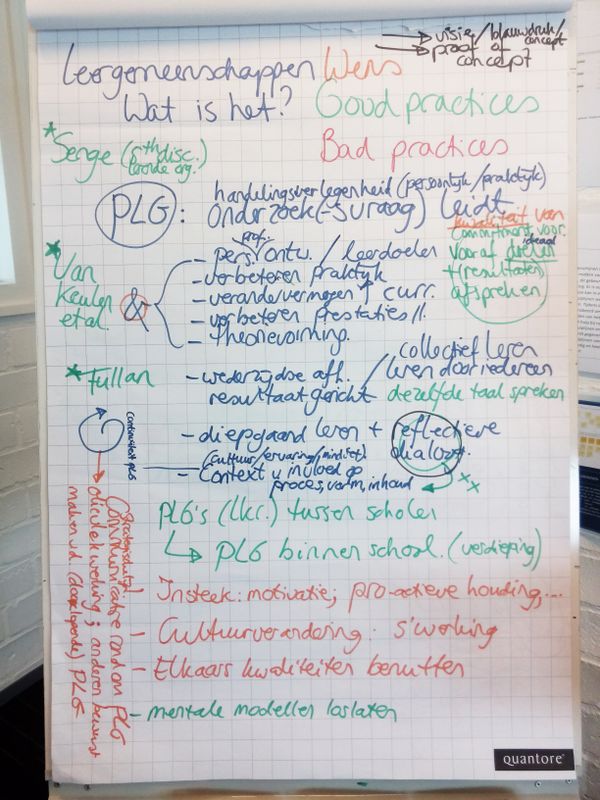 → visie/blauwdruk/concept
→ proof of concept
Leergemeenschappen Wens
Wat is het? Good practices
Bad practices
* Senge (5th disc.)
lerende org.
handelingsverlegenheid (persoonlijk/praktijk)
PLG : Onderzoek(-svraag) leidt
* Van Keulen et al.
&
prof.
- pers. ontw. / leerdoelen
- verbeteren praktijk
- verandervermogen ↑ curr.
- verbeteren prestaties ll.
- theorievorming.
kwaliteit van
commitment voor.
vooraf doelen ideaal
+ (resultaten)
afspreken
* Fullan
- wederzijdse afh.
resultaatgericht
/ collectief leren
/ leren door iedereen
dezelfde taal spreken
continuïteit PLG
- diepgaand leren + reflectieve dialoog.
(cultuur/ervaring/mindset)
- Context v invloed op
proces, vorm, inhoud
xx
PLG's (lkr.) tussen scholen
↳ PLG binnen school. (verdieping)
- Insteek: motivatie; pro-actieve houding,...
- Cultuurverandering : s'working
- Elkaars kwaliteiten benutten
- mentale modellen loslaten
Communicatie rond om PLG
olievlekwerking ; anderen bewust
maken v.d. (doorlopende) PLG
quantore